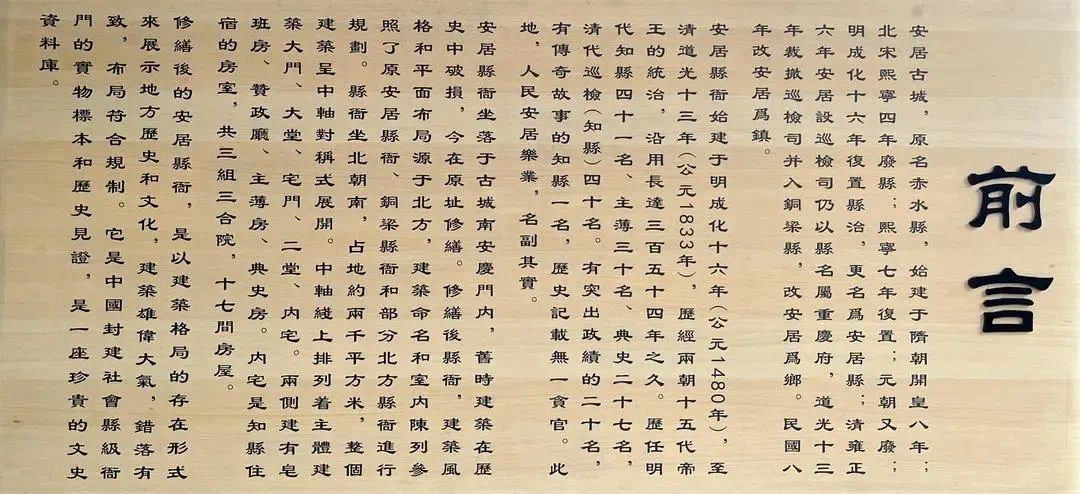 前言
安居古城，原名赤水縣，始建于隋朝開皇八年；
北宋熙寧四年廢縣；熙寧七年復置；元朝又廢；
明成化十六年復置縣治，更名爲安居縣；清雍正
六年安居設巡檢司仍以縣名屬重慶府，道光十三
年裁撤巡檢司并入銅梁縣，改安居爲鄉。民國八
年改安居爲鎮。
安居縣衙始建于明成化十六年（公元1480年），至
清道光十三年（公元1833年），歷經兩朝十五代帝
王的統治，沿用長達三百五十四年之久。歷任明
代知縣四十一名、主薄三十名、典史二十七名，
清代巡檢（知縣）四十名。有突出政績的二十名，
有傳奇故事的知縣一名，歷史記載無一貪官。此
地，人民安居樂業，名副其實。
安居縣衙坐落于古城南安慶門内，舊時建築在歷
史中破損，今在原址修繕。修繕後縣衙，建築風
格和平面布局源于北方，建築命名和室内陳列參
照了原安居縣衙、銅梁縣衙和部分北方縣衙進行
規劃。縣衙坐北朝南，占地約兩千平方米，整個
建築呈中軸對稱式展開。中軸綫上排列着主體建
築大門、大堂、宅門、二堂、内宅。兩側建有皂
班房、贊政廳、主薄房、典史房。内宅是知縣住
宿的房室，共三組三合院，十七間房屋。
修繕後的安居縣衙，是以建築格局的存在形式
來展示地方歷史和文化，建築雄偉大氣，錯落有
致，布局符合規制。它是中國封建社會縣級衙
門的實物標本和歷史見證，是一座珍貴的文史
資料庫。